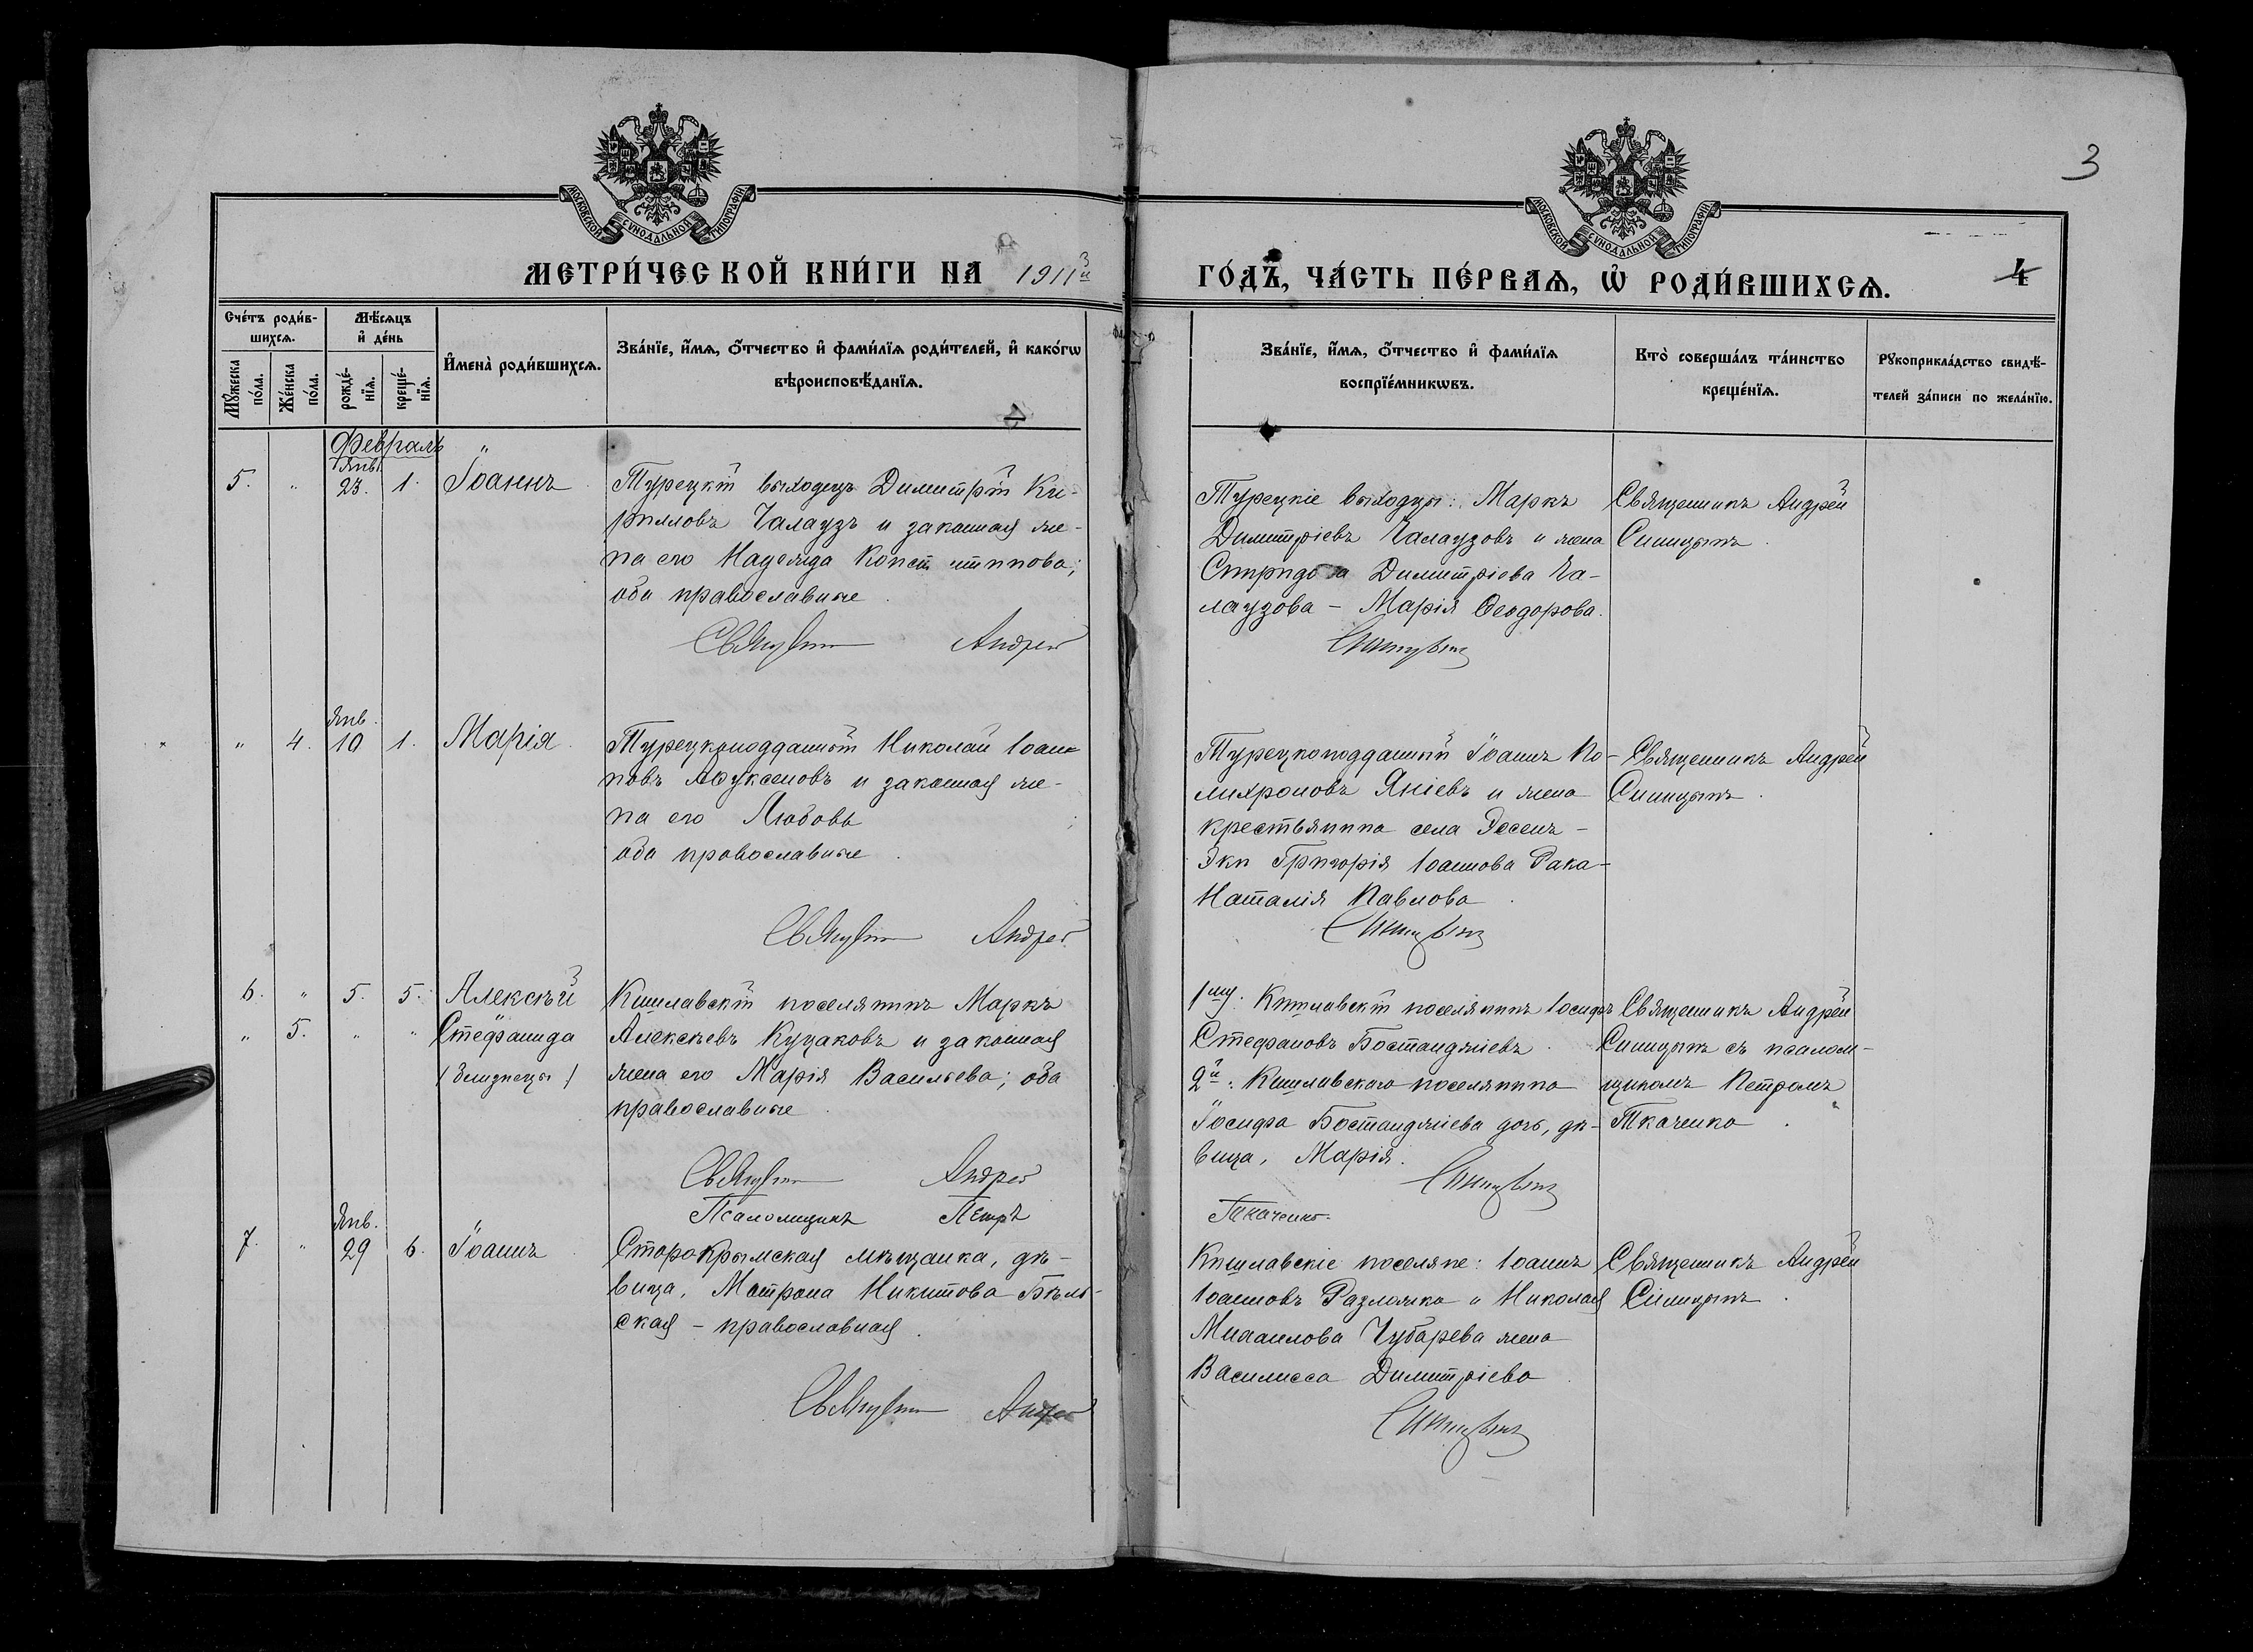 3
МОСКОВСКОЙ СѴНОДАЛЬНОЙ ТИПОГРАФІИ
МОСКОВСКОЙ СѴНОДАЛЬНОЙ ТИПОГРАФІИ
МЕТРИ́ЧЕСКОЙ КНИ́ГИ НА 1911й
ГО́ДЪ, ЧА́СТЬ ПЕ́РВАѦ, Ѡ҆ РОДИ́ВШИХСѦ.
4
Сче́тъ роди́в-
шихсѧ.
Мꙋ́жеска по́ла.
Же́нска по́ла.
Мѣ́сѧцъ
и҆ де́нь
рожде́-нїѧ.
креще́-нїѧ.
И҆мена̀ роди́вшихсѧ.
Зва́нїе, и҆́мѧ, ѻ҆́тчество и҆ фами́лїѧ роди́телей, и҆ како́гѡ
вѣроисповѣ́данїѧ.
Зва́нїе, и҆́мѧ, ѻ҆́тчество и҆ фами́лїѧ
воспрїе́мникѡвъ.
Кто̀ соверша́лъ та́инство
креще́нїѧ.
Рꙋкоприкла́дство свидѣ́-
телей за́писи по жела́нїю.
Февраль
Янв.
5. " 23. 1. Іоаннъ
Турецкій выходецъ Димитрій Ки-
рилловъ Чалаузъ и законная же-
на его Надежда
оба православные
Андрей
Турецкіе выходцы: Маркъ
Димитріевъ Чалаузовъ и жена
Димитріева Ча-
лаузова – Марія Ѳеодорова.
Синицынъ
Священникъ Андрей
Синицынъ.
Янв.
" 4. 10 1. Марія
Турецкоподданный Николай Іоан-
новъ и законная же-
на его Любовь
оба православные
Андрей
Турецкоподданный Іоаннъ По-
лихроновъ Яніевъ и жена
крестьянина села
Эки Григорія Іоаннова Рака –
Наталія Павлова
Синицынъ
Священникъ Андрей
Синицынъ.
6. " 5. 5. Алексѣй
" 5. " " Стефанида
(близнецы)
Кишлавскій поселянинъ Маркъ
Алексѣевъ Куцаковъ и законная
жена его Марія Васильева; оба
православные
Андрей
Псаломщикъ Петръ
1й: Кишлавскій поселянинъ Іосифъ
Стефановъ Бостанджіевъ.
2й: Кишлавского поселянина
Іосифа Бостанджіева дочь, дѣ-
вица, Марія.
Синицынъ
Ткаченко.
Священникъ Андрей
Синицынъ съ псалом-
щикомъ Петромъ
Ткаченко.
Янв.
7. " 29 6. Іоаннъ
Старокрымская мѣщанка, дѣ-
вица, Матрона Никитова Бѣль-
ская – православная.
Андрей
Кишлавскіе поселяне: Іоаннъ
Іоанновъ Разложко и Николая
Михаилова Чубарева жена
Василисса Димитріева
Синицынъ
Священникъ Андрей
Синицынъ.